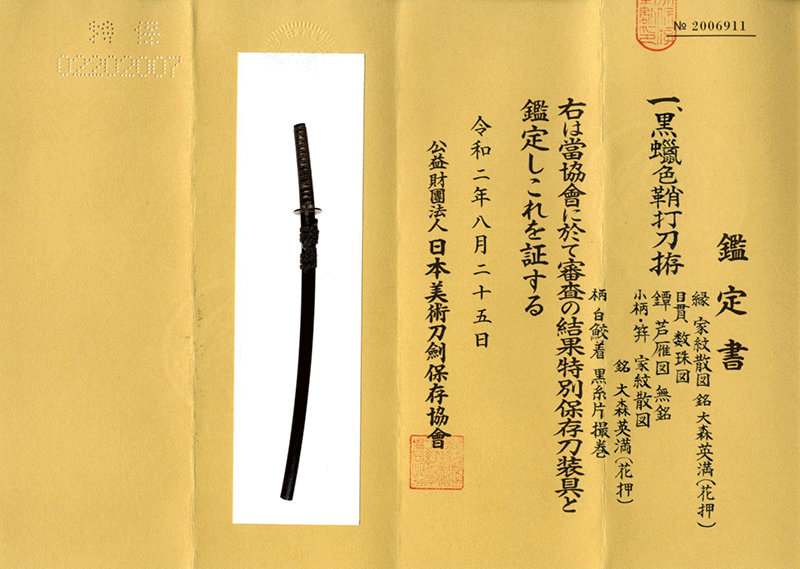 № 2006911
鑑定書
一、黒蠟色鞘打刀拵
縁 家紋散図 銘 大森英満(花押)
目貫 数珠図
鐔 芦雁図 無銘
小柄・笄 家紋散図
銘 大森英満(花押)
柄 白鮫着 黒糸片撮巻
右は當協會に於て審査の結果特別保存刀装具と
鑑定しこれを証する
令和二年八月二十五日
公益財團法人 日本美術刀劍保存協會
02202007